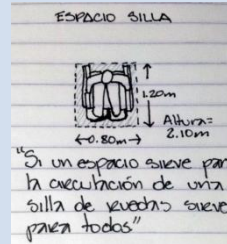 ESPACIO SILLA
1.20m
Altura=
2.10m
0.80m
"Si un espacio sirve para
la circulación de una
silla de ruedas sirve
para todos"